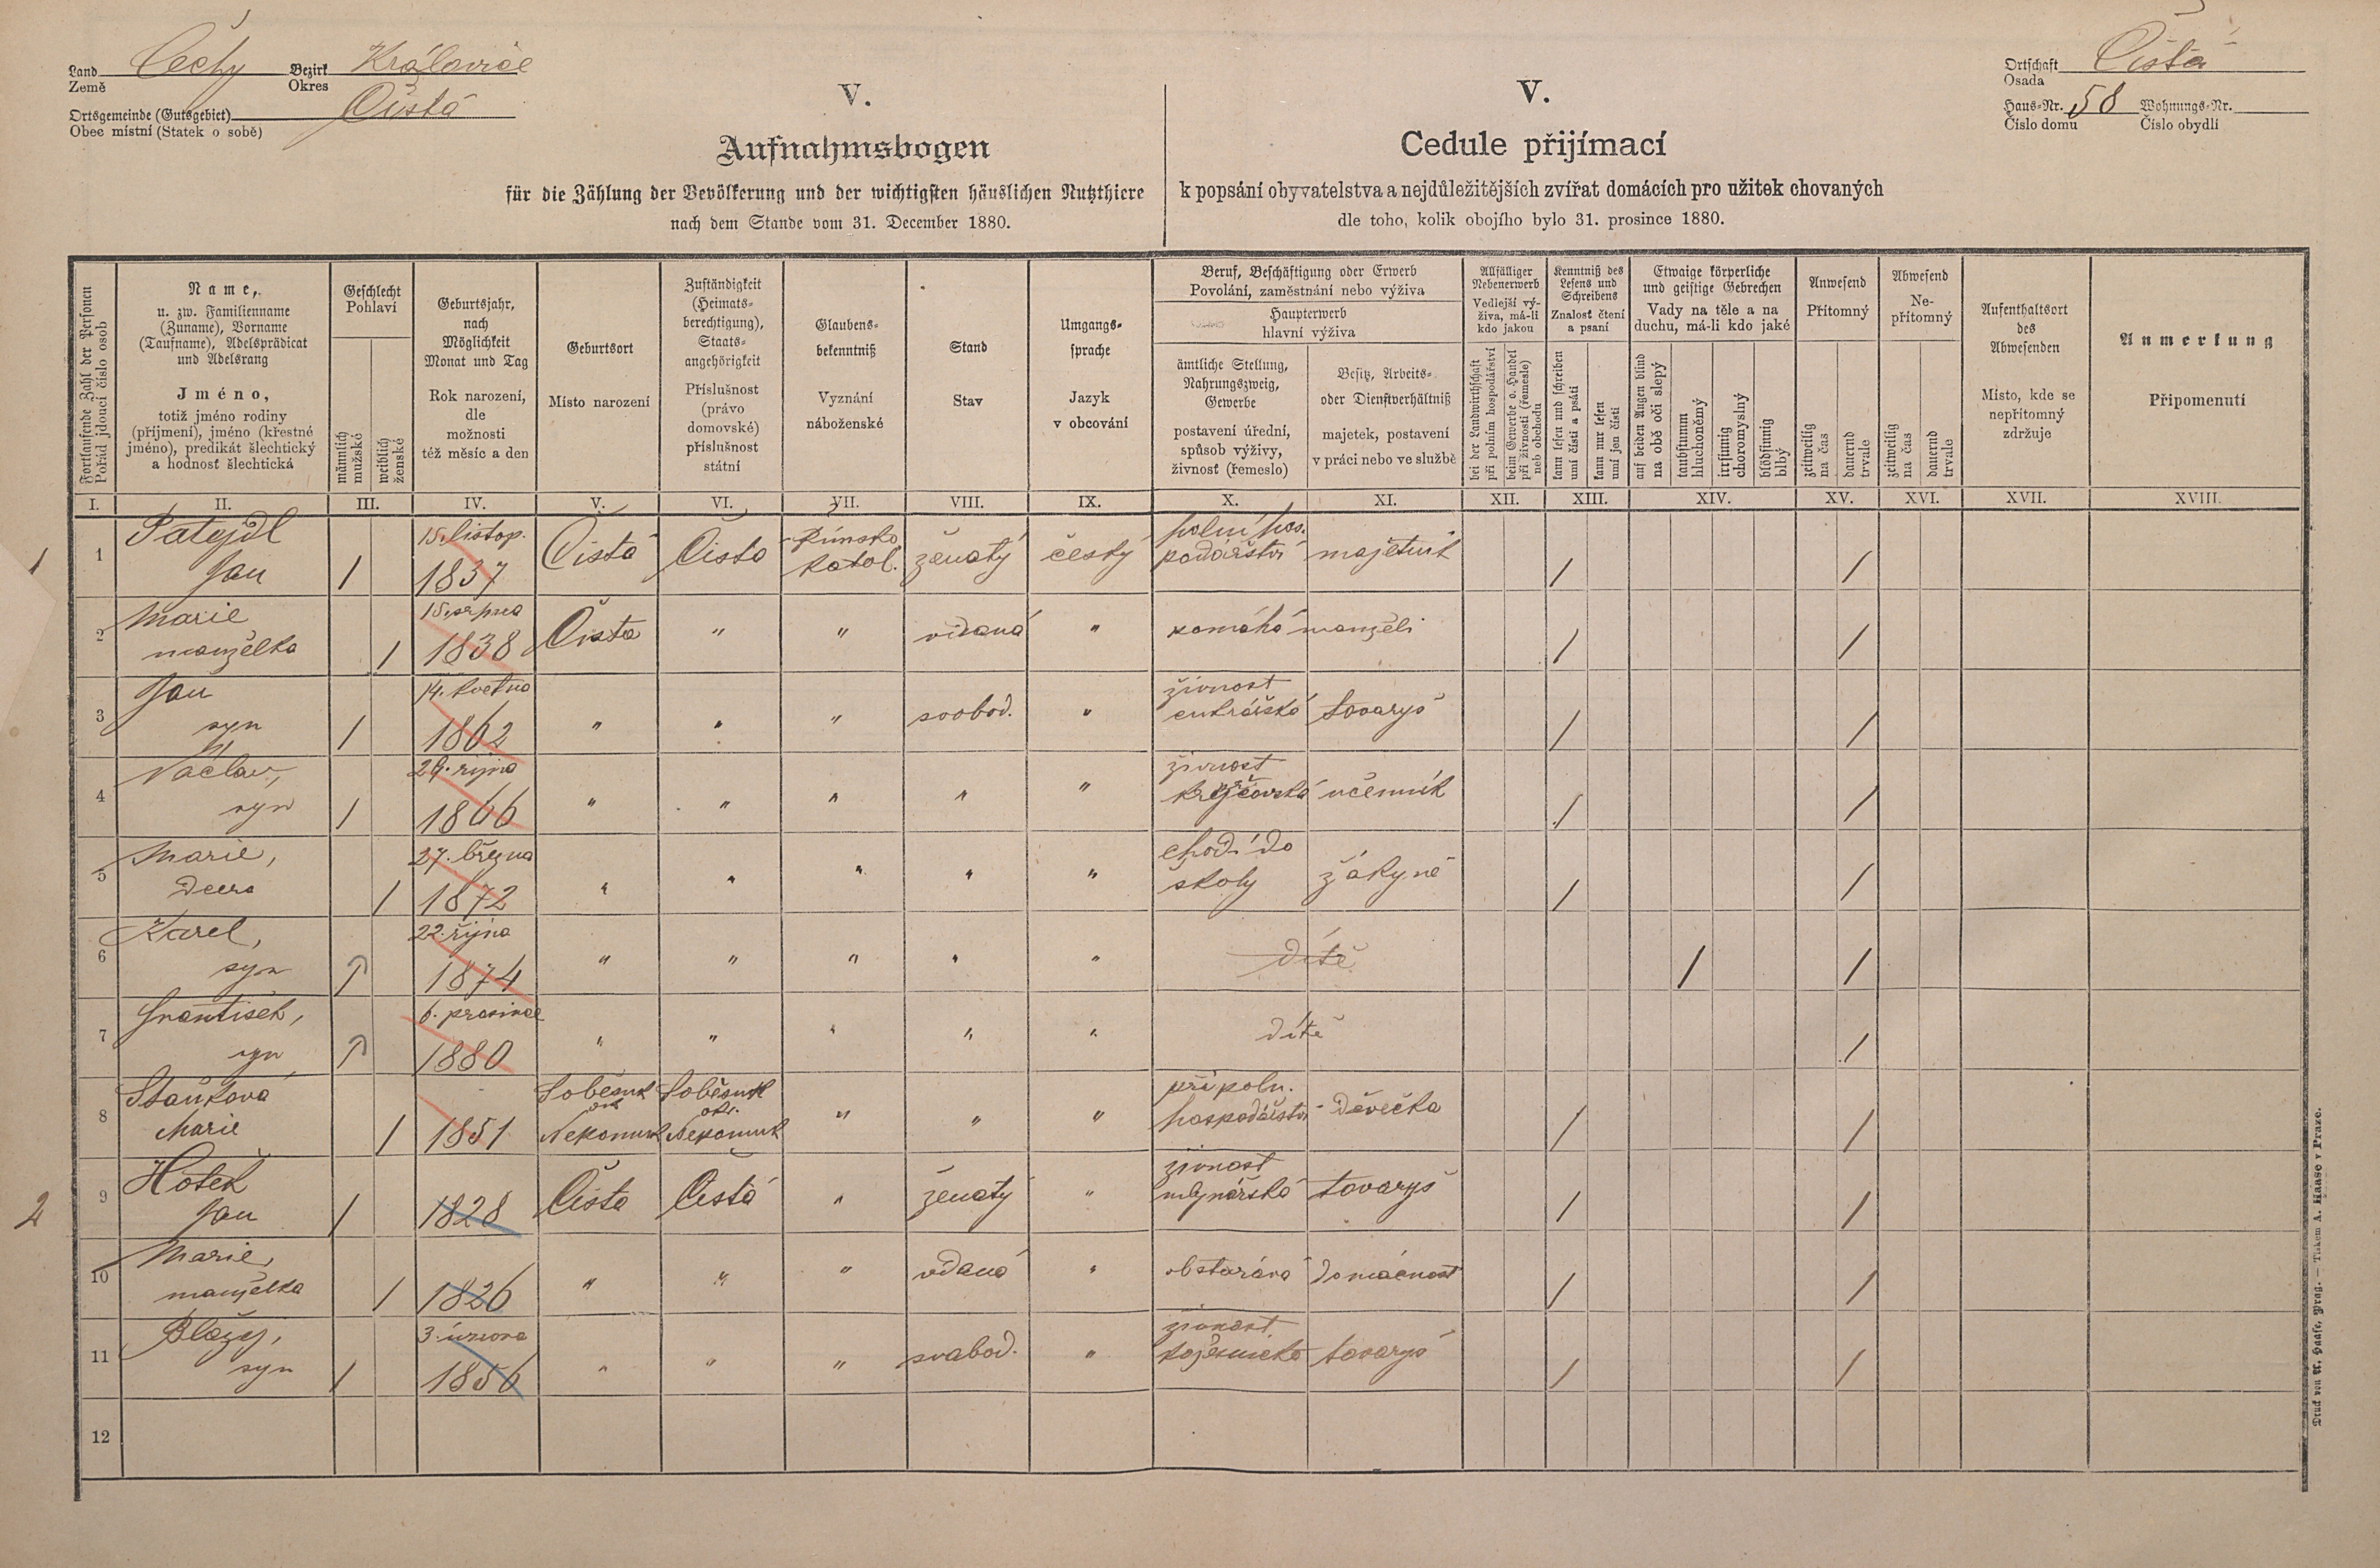 Land Země Čechy Bezirk Okres Královice
Ortsgemeinde (Gutsgebiet) Obec místní (Statek o sobě) Čistá
Ortschaft Osada Čistá
Haus-Nr. Číslo domu 58 Wohnungs-Nr. Číslo obydlí
V.
Aufnahmsbogen
für die Zählung der Bevölkerung und der wichtigsten häuslichen Nutzthiere
nach dem Stande vom 31. December 1880.
V.
Cedule přijímací
k popsání obyvatelstva a nejdůležitějších zvířat domácích pro užitek chovaných
dle toho, kolik obojího bylo 31. prosince 1880.
Fortlaufende Zahl der Personen
Pořád jdoucí číslo osob
Name,
u. zw. Familienname
(Zuname), Vorname
(Taufname), Adelsprädicat
und Adelsrang
Jméno,
totiž jméno rodiny
(příjmení), jméno (křestné
jméno), predikát šlechtický
a hodnost šlechtická
Geschlecht
Pohlaví
männlich
mužské
weiblich
ženské
Geburtsjahr,
nach
Möglichkeit
Monat und Tag
Rok narození,
dle
možnosti
též měsíc a den
Geburtsort
Místo narození
Zuständigkeit
(Heimats-
berechtigung),
Staats-
angehörigkeit
Příslušnost
(právo
domovské)
příslušnost
státní
Glaubens-
bekenntniß
Vyznání
náboženské
Stand
Stav
Umgangs-
sprache
Jazyk
v obcování
Beruf, Beschäftigung oder Erwerb
Povolání, zaměstnání nebo výživa
Haupterwerb
hlavní výživa
ämtliche Stellung,
Nahrungszweig,
Gewerbe
postavení úřední,
spůsob výživy,
živnosť (řemeslo)
Besitz, Arbeits-
oder Dienstverhältniß
majetek, postavení
v práci nebo ve službě
Allfälliger
Nebenerwerb
Vedlejší vý-
živa, má-li
kdo jakou
bei der Landwirthschaft
při polním hospodářství
beim Gewerbe o. Handel
při živnosti (řemesle)
neb obchodu
Kenntniß des
Lesens und
Schreibens
Znalosť čtení
a psaní
kann lesen und schreiben
umí čísti a psáti
kann nur lesen
umí jen čísti
Etwaige körperliche
und geistige Gebrechen
Vady na těle a na
duchu, má-li kdo jaké
auf beiden Augen blind
na obě oči slepý
taubstumm
hluchoněmý
irrsinnig
choromyslný
blödsinnig
blbý
Anwesend
Přítomný
zeitweilig
na čas
dauernd
trvale
Abwesend
Ne-
přítomný
zeitweilig
na čas
dauernd
trvale
Aufenthaltsort
des
Abwesenden
Místo, kde se
nepřítomný
zdržuje
Anmerkung
Připomenutí
I. II. III. IV. V. VI. VII. VIII. IX. X. XI. XII. XIII. XIV. XV. XVI. XVII. XVIII.
1 1 Patejdl Jan / 15. listop. 1837 Čistá Čista Římsko katol. ženatý český polní hospodářství majetník / /
2 Marie manželka / 15. srpna 1838 Čista " " vdaná " pomáhá manželi / /
3 Jan syn / 14. května 1862 " " " svobod. " živnost cukrářská tovaryš / /
4 Václav, syn / 29. října 1866 " " " " " živnost krejčovská učenník / /
5 Marie, dcera / 27. března 1872 " " " " " chodí do školy žákyně / /
6 Karel, syn 22. října 1874 " " " " " dítě / /
7 František, syn 6. prosince 1880 " " " " " dítě /
8 Staňková Marie / 1851 Soběsuk okr. Nepomuk Soběsuk okr. Nepomuk " " " při poln. hospodářství děvečka / /
2 9 Hotek Jan / 1828 Čista Čistá " ženatý " živnost mlynářská tovaryš / /
10 Marie, manželka / 1826 " " " vdaná " obstarává domácnost / /
11 Blažej, syn / 3. února 1856 " " " svobod. " živnost tovaryš / /
12
Druck von A. Haase, Prag. — Tiskem A. Haase v Praze.